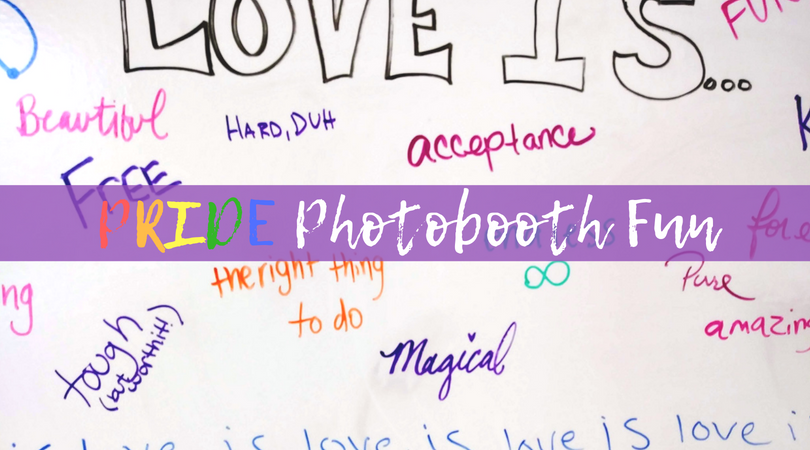 LOVE IS...
Beautiful
HARD, DUH
acceptance
FREE
PRIDE Photobooth Fun
the right thing
to do
∞
Pure
amazing
tough
(but worth it!)
Magical
is love is love is love is love i